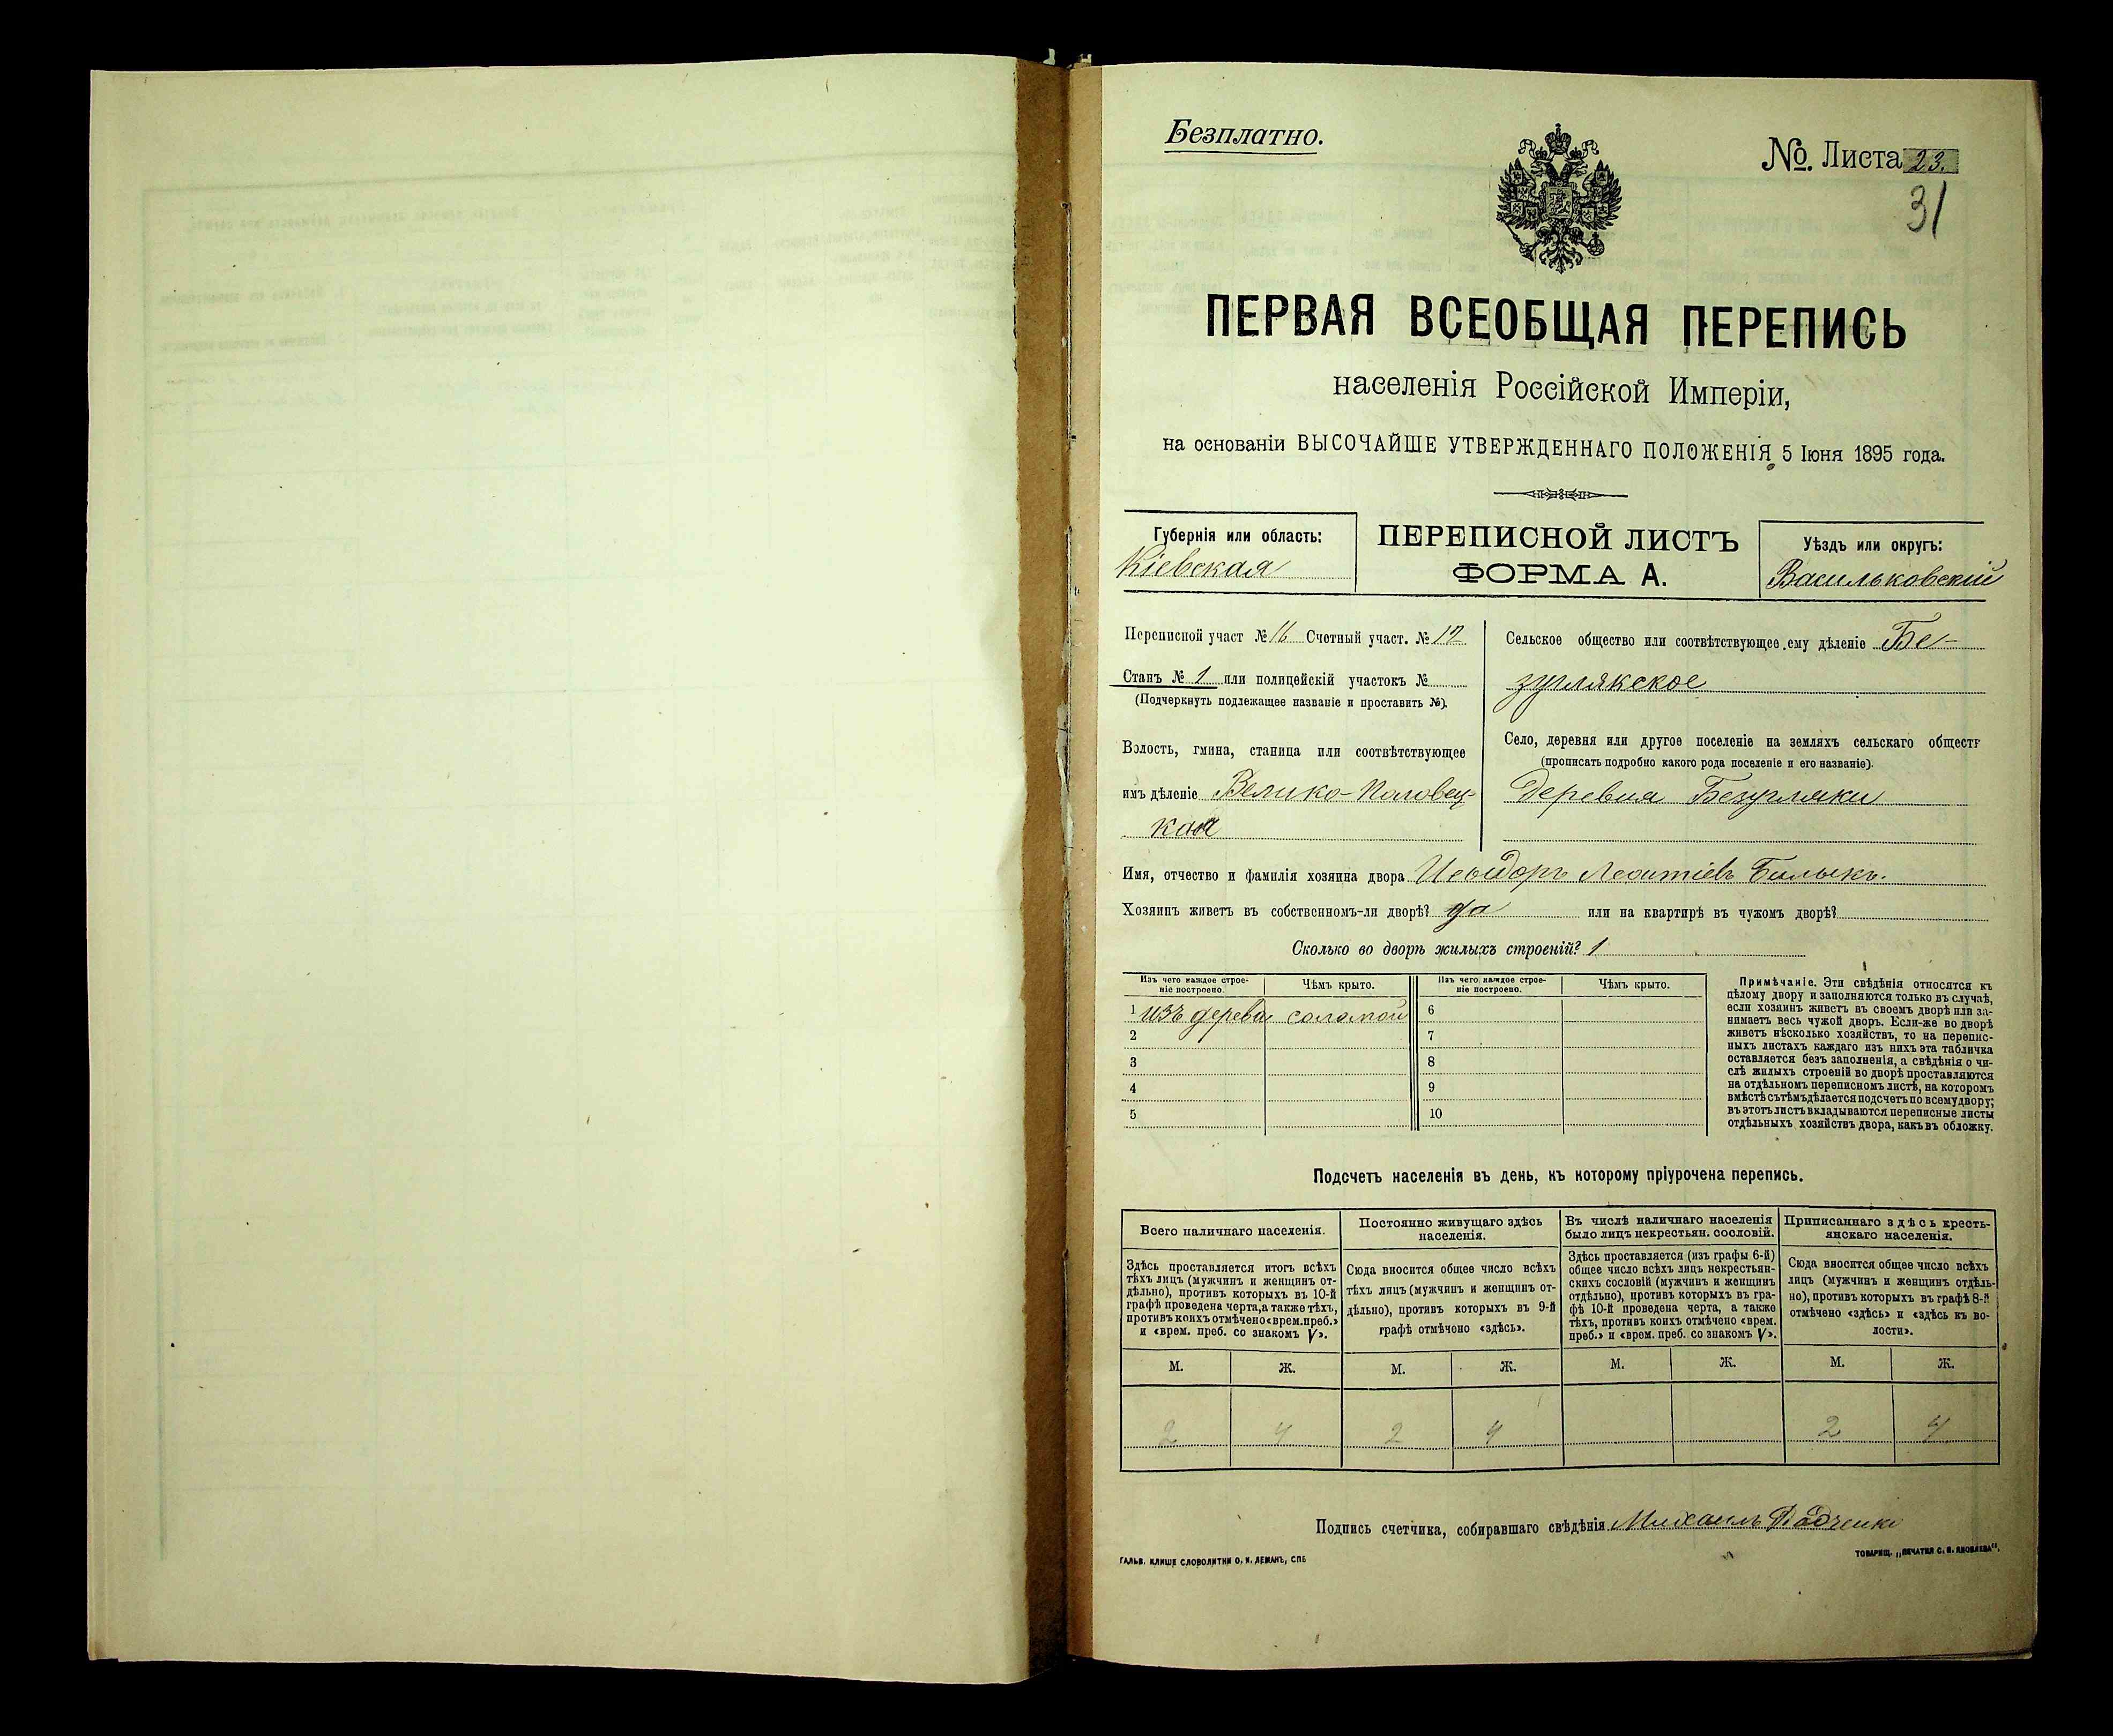 Безплатно.
№. Листа 23.
31
ПЕРВАЯ ВСЕОБЩАЯ ПЕРЕПИСЬ
населенія Россійской Имперіи,
на основаніи ВЫСОЧАЙШЕ УТВЕРЖДЕННАГО ПОЛОЖЕНІЯ 5 Іюня 1895 года.
Губернія или область:
Кіевская
ПЕРЕПИСНОЙ ЛИСТЪ
ФОРМА А.
Уѣздъ или округъ:
Васильковскій
Переписной участ № 16 Счетный участ. № 17
Станъ № 1 или полицейскій участокъ №
(Подчеркнуть подлежащее названіе и проставить №).
Волость, гмина, станица или соотвѣтствующее
имъ дѣленіе Велико-Половец-
кая
Сельское общество или соотвѣтствующее ему дѣленіе Бе-
зуглякское
Село, деревня или другое поселеніе на земляхъ сельскаго обществ
(прописать подробно какого рода поселеніе и его названіе).
Деревня Безугляки
Имя, отчество и фамилія хозяина двора Исидоръ Леонтіевъ Билыкъ.
Хозяинъ живетъ въ собственномъ-ли дворѣ? да или на квартирѣ въ чужомъ дворѣ?
Сколько во дворѣ жилыхъ строеній? 1
Изъ чего каждое строе-
ніе построено.
Чѣмъ крыто.
Изъ чего каждое строе-
ніе построено.
Чѣмъ крыто.
1 изъ дерева соломой 6
2 7
3 8
4 9
5 10
Примѣчаніе. Эти свѣдѣнія относятся къ
цѣлому двору и заполняются только въ случаѣ,
если хозяинъ живетъ въ своемъ дворѣ или за-
нимаетъ весь чужой дворъ. Если-же во дворѣ
живетъ нѣсколько хозяйствъ, то на перепис-
ныхъ листахъ каждаго изъ нихъ эта табличка
оставляется безъ заполненія, а свѣдѣнія о чи-
слѣ жилыхъ строеній во дворѣ проставляются
на отдѣльномъ переписномъ листѣ, на которомъ
вмѣстѣ съ тѣмъ дѣлается подсчетъ по всему двору;
въ этотъ листъ вкладываются переписные листы
отдѣльныхъ хозяйствъ двора, какъ въ обложку.
Подсчетъ населенія въ день, къ которому пріурочена перепись.
Всего наличнаго населенія.
Здѣсь проставляется итогъ всѣхъ
тѣхъ лицъ (мужчинъ и женщинъ от-
дѣльно), противъ которыхъ въ 10-й
графѣ проведена черта, а также тѣхъ,
противъ коихъ отмѣчено «врем. преб.»
и «врем. преб. со знакомъ V».
Постоянно живущаго здѣсь
населенія.
Сюда вносится общее число всѣхъ
тѣхъ лицъ (мужчинъ и женщинъ от-
дѣльно), противъ которыхъ въ 9-й
графѣ отмѣчено «здѣсь».
Въ числѣ наличнаго населенія
было лицъ некрестьян. сословій.
Здѣсь проставляется (изъ графы 6-й)
общее число всѣхъ лицъ некрестьян-
скихъ сословій (мужчинъ и женщинъ
отдѣльно), противъ которыхъ въ гра-
фѣ 10-й проведена черта, а также
тѣхъ, противъ коихъ отмѣчено «врем.
преб.» и «врем. преб. со знакомъ V».
Приписаннаго здѣсь кресть-
янскаго населенія.
Сюда вносится общее число всѣхъ
лицъ (мужчинъ и женщинъ отдѣль-
но), противъ которыхъ въ графѣ 8-й
отмѣчено «здѣсь» и «здѣсь къ во-
лости».
М. Ж. М. Ж. М. Ж. М. Ж.
2 4 2 4 2 4
Подпись счетчика, собиравшаго свѣдѣнія Михаилъ Радченко
ГАЛЬВ. КЛИШЕ СЛОВОЛИТНИ О. И. ЛЕМАНЪ, СПБ
ТОВАРИЩ. „ПЕЧАТНЯ С. П. ЯКОВЛЕВА".